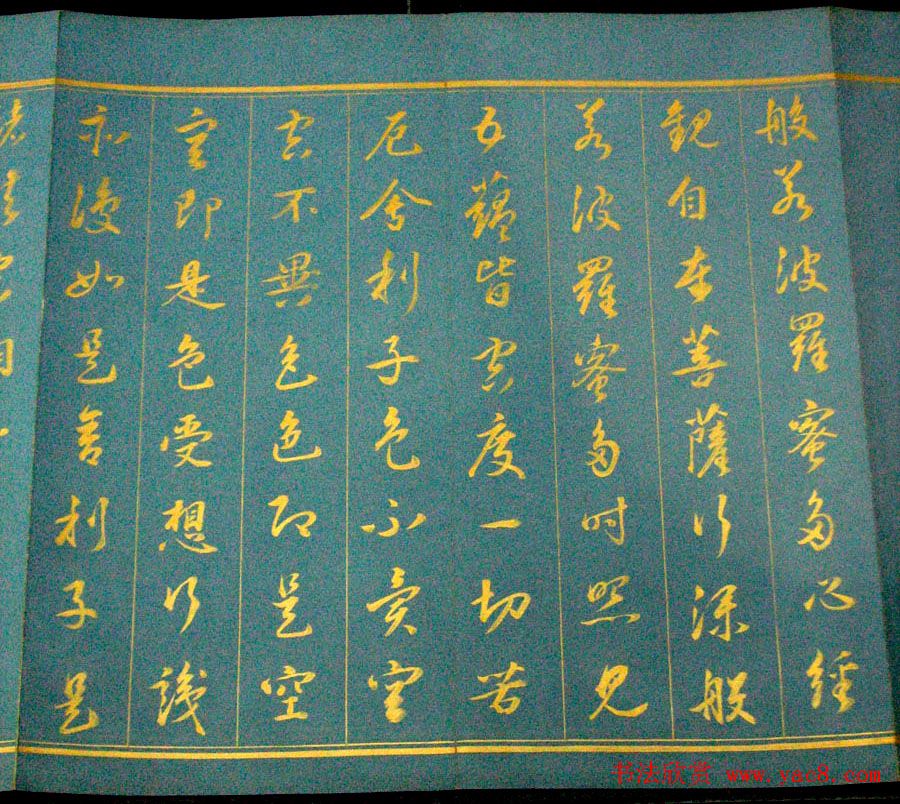 般若波羅蜜多心經
觀自在菩薩行深般
若波羅蜜多時照見
五蘊皆空度一切苦
厄舍利子色不異空
空不異色色即是空
空即是色受想行識
亦復如是舍利子是
諸法空相
书法欣赏 www.yac8.com